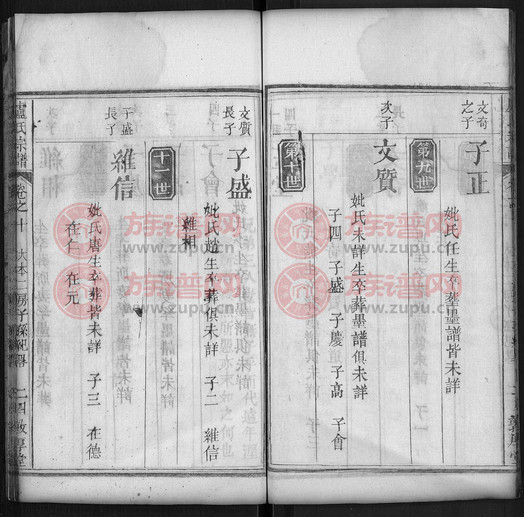 文奇之子
子正
妣氏任生卒葬墨譜皆未詳
第九世
次子
文質
妣氏未詳生卒葬墨譜俱未詳
子四 子盛 子慶 子高 子會
第十世
文質長子
子盛
妣氏趙生卒葬俱未詳 子二 維信
維相
十一世
子盛長子
維信
妣氏唐生卒葬皆未詳 子三 在德
在仁 在元
盧氏宗譜 卷之十 大本二房子孫紀畧 二四 敦厚堂
族谱网
www.zupu.cn
族谱网
www.zupu.cn
族谱网
www.zupu.cn
族谱网
www.zupu.cn